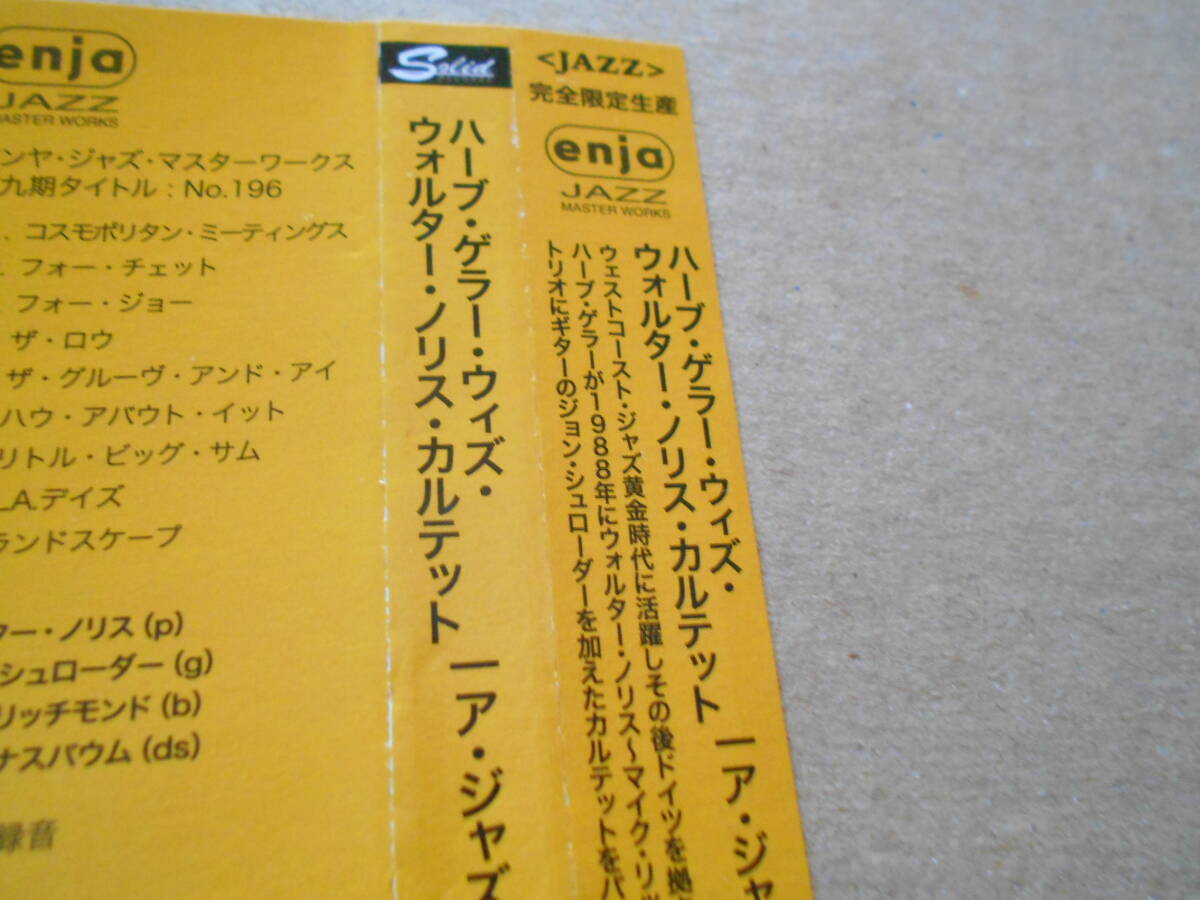 enja
JAZZ
MASTER WORKS
ンヤ・ジャズ・マスターワークス
九期タイトル : No.196
コスモポリタン・ミーティングス
フォー・チェット
フォー・ジョー
ザ・ロウ
ザ・グルーヴ・アンド・アイ
ハウ・アバウト・イット
リトル・ビッグ・サム
L.A.デイズ
ランドスケープ
ター・ノリス (p)
シュローダー (g)
リッチモンド (b)
ナスバウム (ds)
録音
Solid
RECORDS
ハーブ・ゲラー・ウィズ・
ウォルター・ノリス・カルテット
ア・ジャズ
<JAZZ>
完全限定生産
enja
JAZZ
MASTER WORKS
ハーブ・ゲラー・ウィズ・
ウォルター・ノリス・カルテット
ア・ジャ
ウェストコースト・ジャズ黄金時代に活躍しその後ドイツを拠
ハーブ・ゲラーが1988年にウォルター・ノリス〜マイク・リッ
トリオにギターのジョン・シュローダーを加えたカルテットをバ